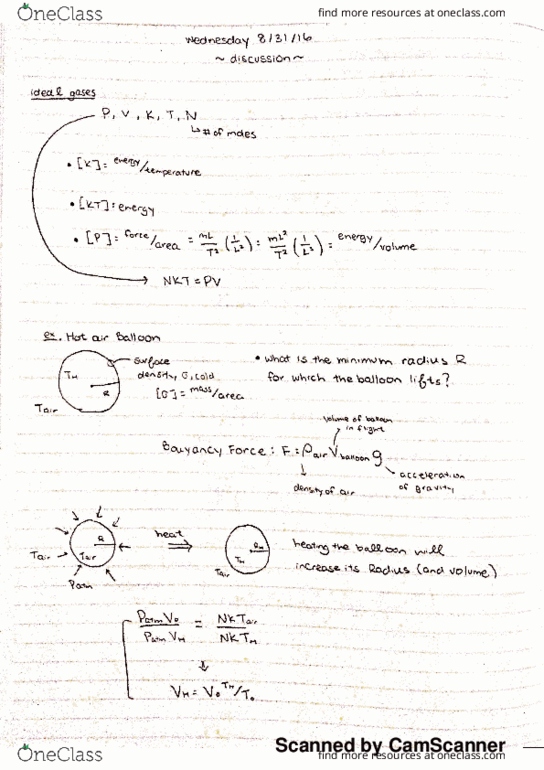 OneClass
find more resources at oneclass.com
Wednesday 8/31/16
~ discussion ~
ideal gases
P, V, K, T, N
↳ # of moles
• [K] = energy/temperature
• [KT] = energy
• [P] = force/area = mL/T² (1/L²) = mL²/T² (1/L³) = energy/volume
NKT = PV
ex. Hot air Balloon
TH
R
Tair
surface
density, σ, cold
[σ] = mass/area
• what is the minimum radius R
for which the balloon lifts?
volume of baloon
in flight
Bouyancy Force: F = ρair Vballoon g
density of air
acceleration
of gravity
R
Tair
Tair
Patm
heat
RH
TH
Tair
heating the balloon will
increase its Radius (and volume)
Patm V0 / Patm VH = NKTair / NKTH
↓
VH = V0 TH/T0
Scanned by CamScanner
OneClass
find more resources at oneclass.com